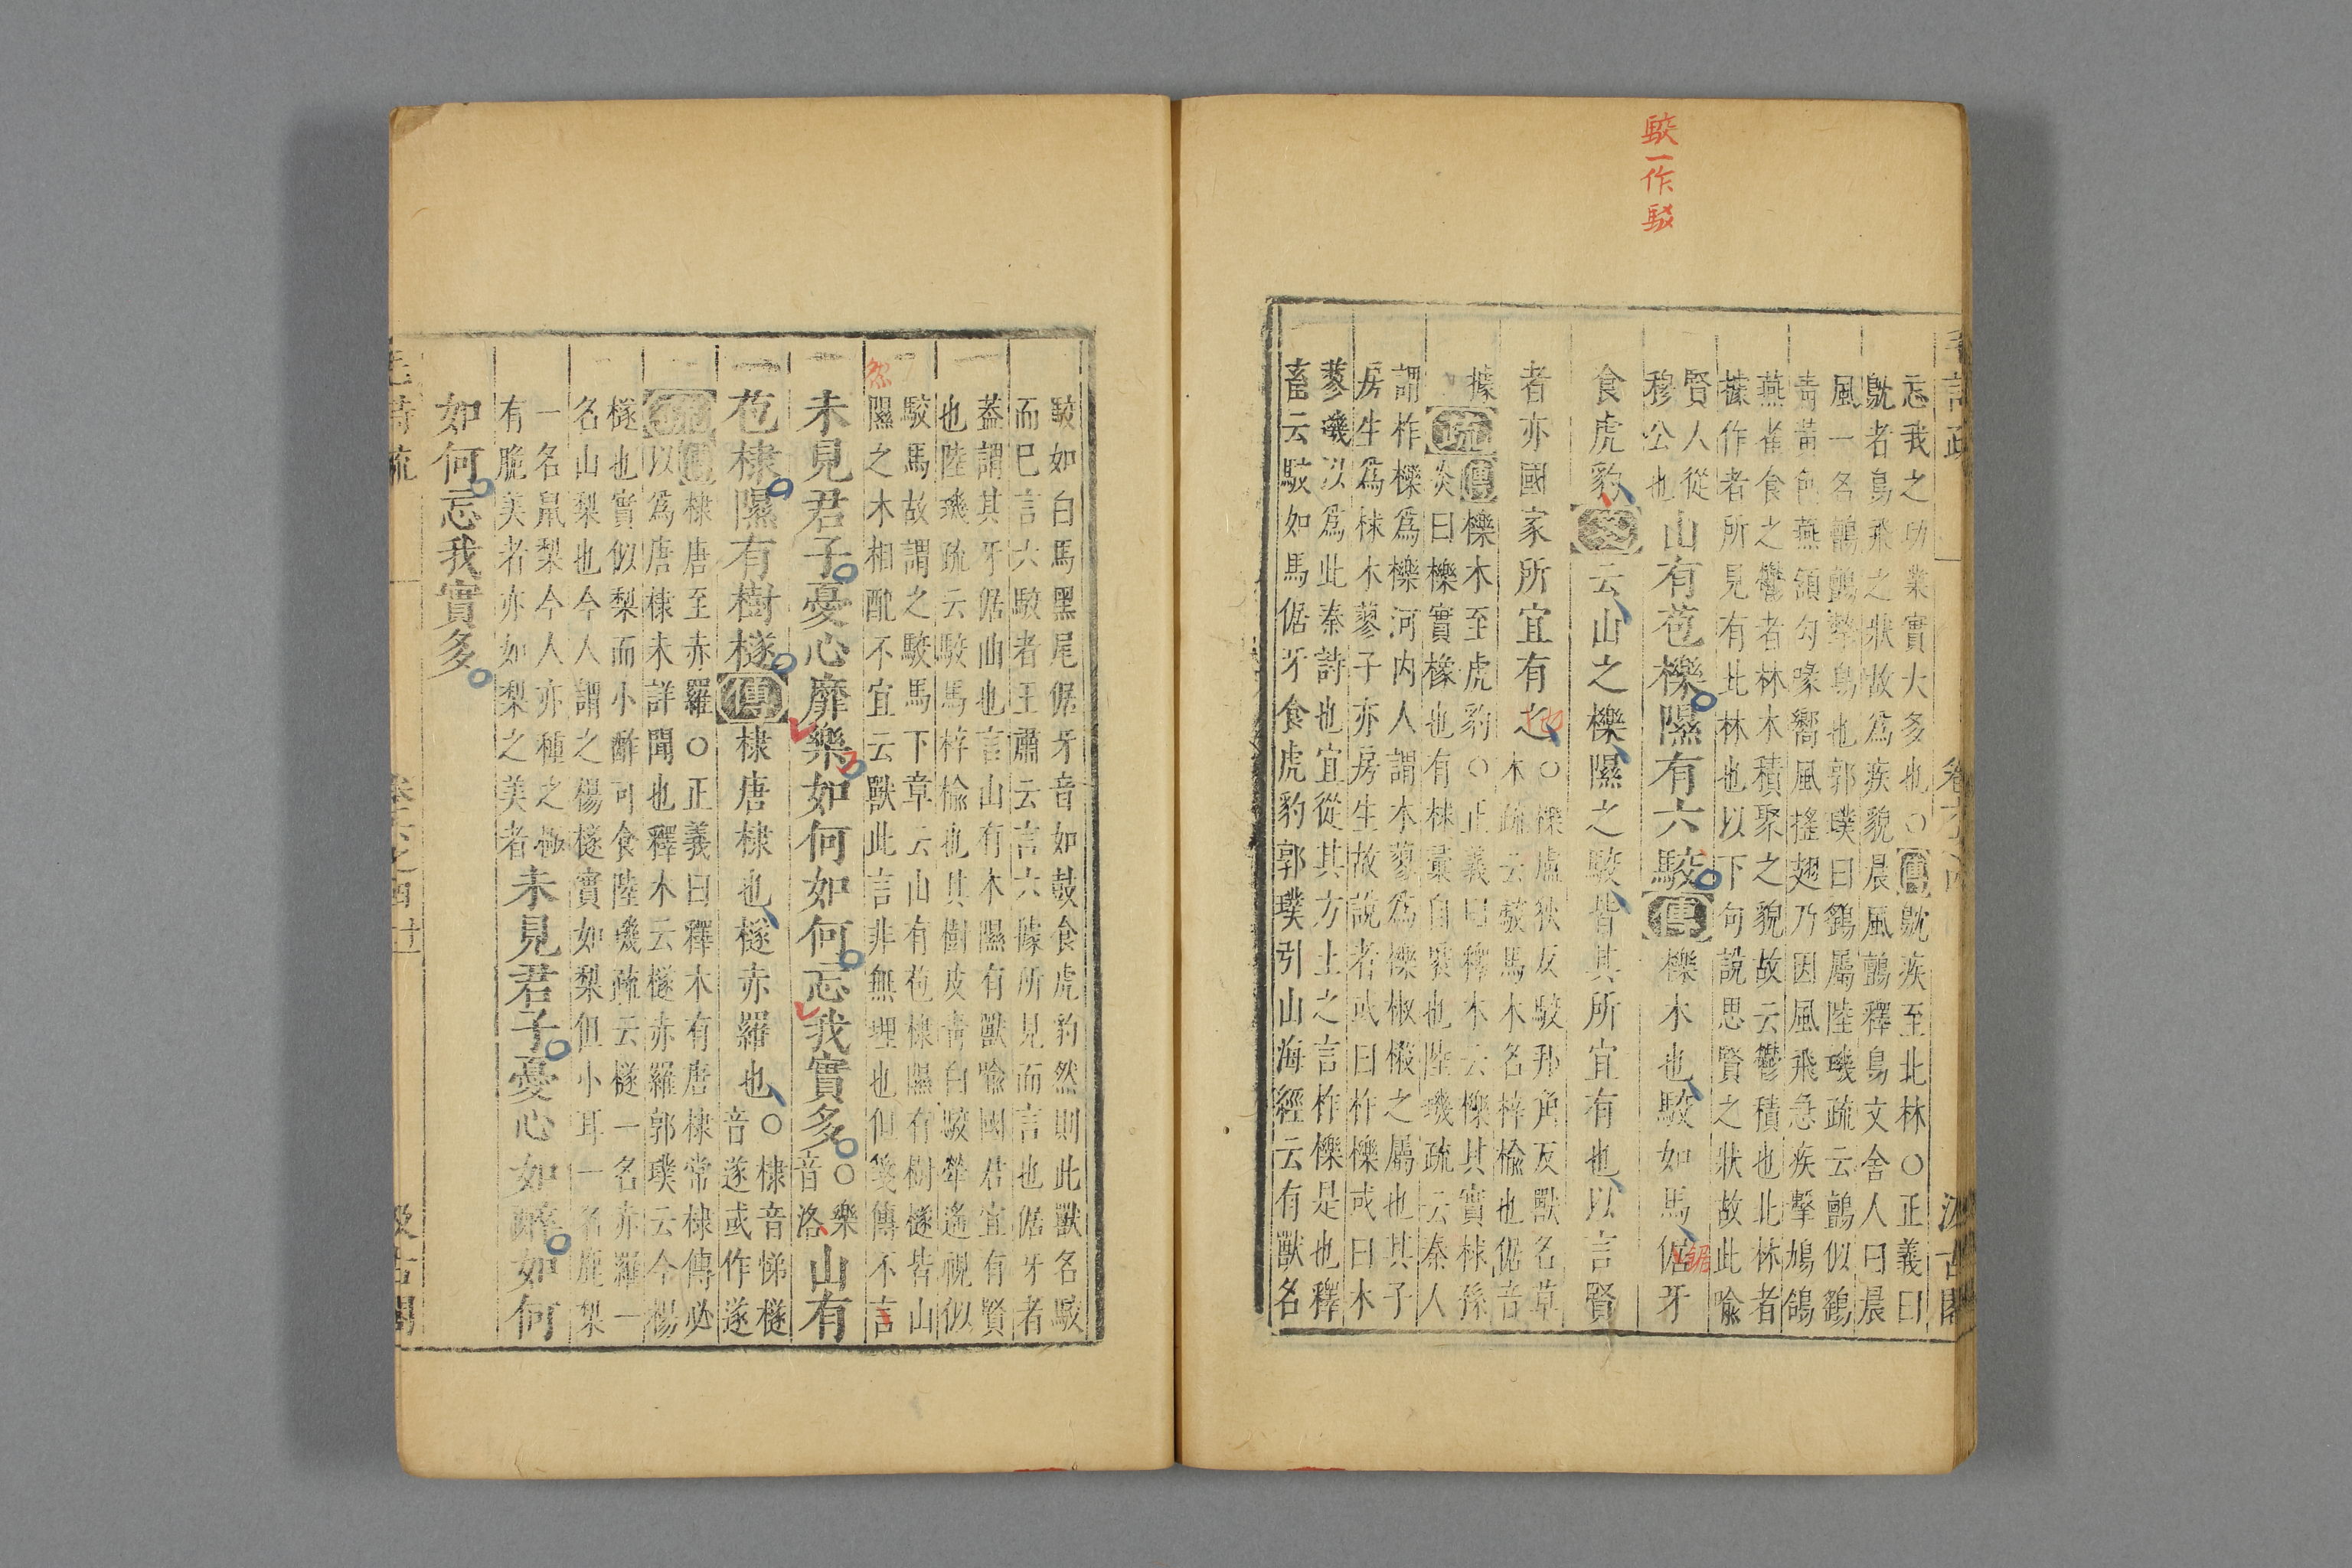 駮一作駁
忘我之功業實大多也○傳鴥疾至北林○正義曰
鴥者鳥飛之狀故爲疾貌晨風鸇釋鳥文舍人曰晨
風一名鸇鸇摯鳥也郭璞曰鷂屬陸璣疏云鸇似鷂
青黃色燕頷勾喙嚮風搖翅乃因風飛急疾擊鳩鴿
燕雀食之鬱者林木積聚之貌故云鬱積也北林者
據作者所見有此林也以下句說思賢之狀故此喩
賢人從
穆公也
山有苞櫟隰有六駮傳櫟木也駮如馬倨牙
鋸
食虎豹箋云山之櫟隰之駮皆其所宜有也以言賢
者亦國家所宜有之
○櫟盧狄反駮邦角反獸名草
木疏云駮馬木名梓楡也倨音
據
疏傳櫟木至虎豹○正義曰釋木云櫟其實梂孫
炎曰櫟實橡也有梂彙自裹也陸璣疏云秦人
謂柞櫟爲櫟河内人謂木蓼爲櫟椒樧之屬也其子
房生爲梂木蓼子亦房生故說者或曰柞櫟或曰木
蓼璣以爲此秦詩也宜從其方土之言柞櫟是也釋
畜云駮如馬倨牙食虎豹郭璞引山海經云有獸名
駮如白馬黑尾倨牙音如鼓食虎豹然則此獸名駮
而巳言六駮者王肅云言六據所見而言也倨牙者
蓋謂其牙倨曲也言山有木隰有獸喩國君宜有賢
也陸璣疏云駮馬梓楡也其樹皮青白駮犖遙視似
駮馬故謂之駮馬下章云山有苞棣隰有樹檖皆山
隰之木相配不宜云獸此言非無理也但箋傳不言
然
未見君子憂心靡樂如何如何忘我實多
○樂
音洛
山有
苞棣隰有樹檖傳棣唐棣也檖赤羅也
○棣音悌檖
音遂或作遂
疏傳棣唐至赤羅○正義曰釋木有唐棣常棣傳必
以爲唐棣未詳聞也釋木云檖赤羅郭璞云今楊
檖也實似梨而小酢可食陸璣疏云檖一名赤羅一
名山梨也今人謂之楊檖實如梨但小耳一名鹿梨
一名鼠梨今人亦種之極
有脆美者亦如梨之美者
未見君子憂心如醉如何
如何忘我實多